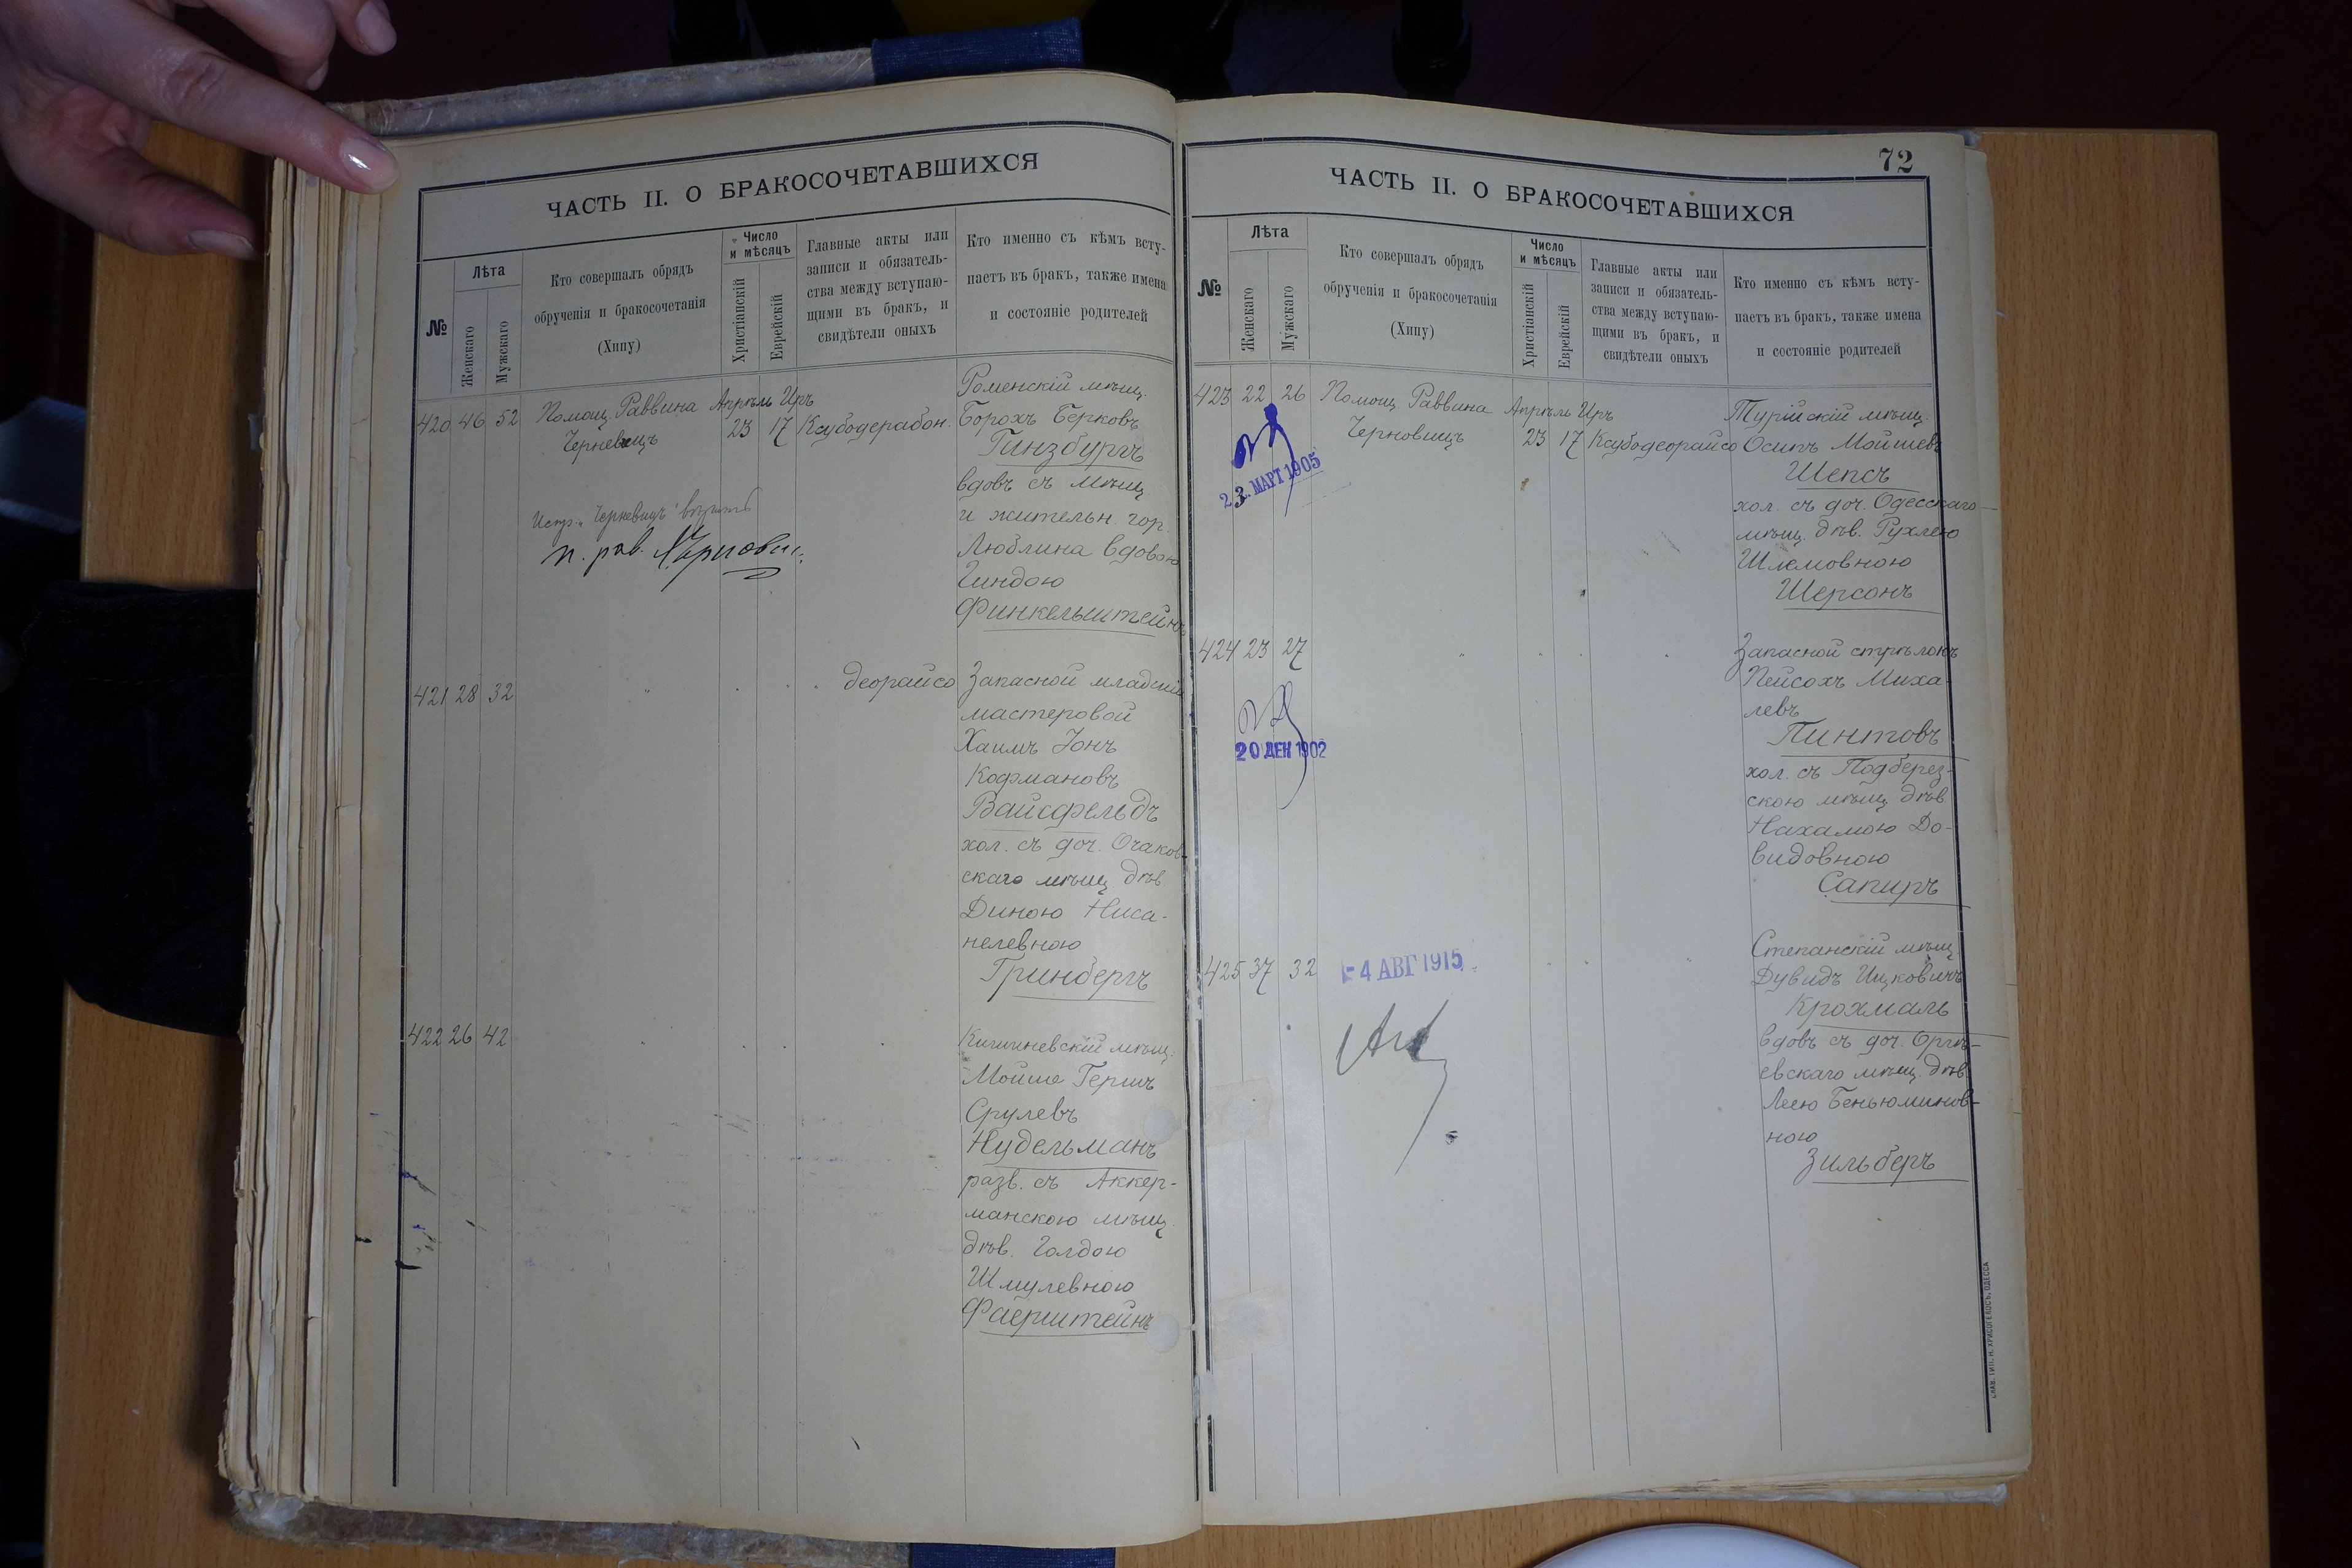 ЧАСТЬ II. О БРАКОСОЧЕТАВШИХСЯ
№
Лѣта
Женскаго
Мужскаго
Кто совершалъ обрядъ
обрученія и бракосочетанія
(Хипу)
Число
и мѣсяцъ
Христіанскій
Еврейскій
Главные акты или
записи и обязатель-
ства между вступаю-
щими въ бракъ, и
свидѣтели оныхъ
Кто именно съ кѣмъ всту-
паетъ въ бракъ, также имена
и состояніе родителей
420 46 52 Помощ. Раввина Апрѣль Иръ
Черневицъ 23 17 Ксубодерабон.
Роменскій мѣщ.
Борохъ Берковъ
Гинзбургъ
вдовъ съ мѣщ
и жительн. гор.
Люблина вдовою
Гиндою
Финкельштейнъ
п. рав.
421 28 32 " деорайсо
Запасной младшій
мастеровой
Хаимъ Іонъ
Кофмановъ
Вайсфельдъ
хол. съ доч. Очаков-
скаго мѣщ дѣв
Диною Ниса-
нелевною
Гринбергъ
422 26 42
Кишиневскій мѣщ.
Мойше Гершъ
Срулевъ
Нудельманъ
разв. съ Аккер-
манскою мѣщ.
дѣв. Голдою
Шмулевною
Фаерштейнъ
72
ЧАСТЬ II. О БРАКОСОЧЕТАВШИХСЯ
№
Лѣта
Женскаго
Мужскаго
Кто совершалъ обрядъ
обрученія и бракосочетанія
(Хипу)
Число
и мѣсяцъ
Христіанскій
Еврейскій
Главные акты или
записи и обязатель-
ства между вступаю-
щими въ бракъ, и
свидѣтели оныхъ
Кто именно съ кѣмъ всту-
паетъ въ бракъ, также имена
и состояніе родителей
423 22 26 Помощ. Раввина Апрѣль Иръ
Черновицъ 23 17 Ксубодеорайсо
23. МАРТ 1905
Турійскій мѣщ.
Осипъ Мойшевъ
Шепсъ
хол. съ доч. Одесскаго
мѣщ. дѣв. Рухлею
Шлемовною
Шерсонъ
424 23 27 "
20 ДЕК 1902
Запасной стрѣлокъ
Пейсохъ Миха-
левъ
Пинтовъ
хол. съ Подберез-
скою мѣщ. дѣв.
Нахамою До-
видовною
Сапиръ
425 37 32
-4 АВГ 1915
Степанскій мѣщ
Дувидъ Ицковичъ
Крохмаль
вдовъ съ доч. Оргѣ-
евскаго мѣщ. дѣв.
Леею Беньюминов-
ною
Зильберъ
СЛАВ. ТИП. Н. ХРИСОГЕЛОСЪ, ОДЕССА